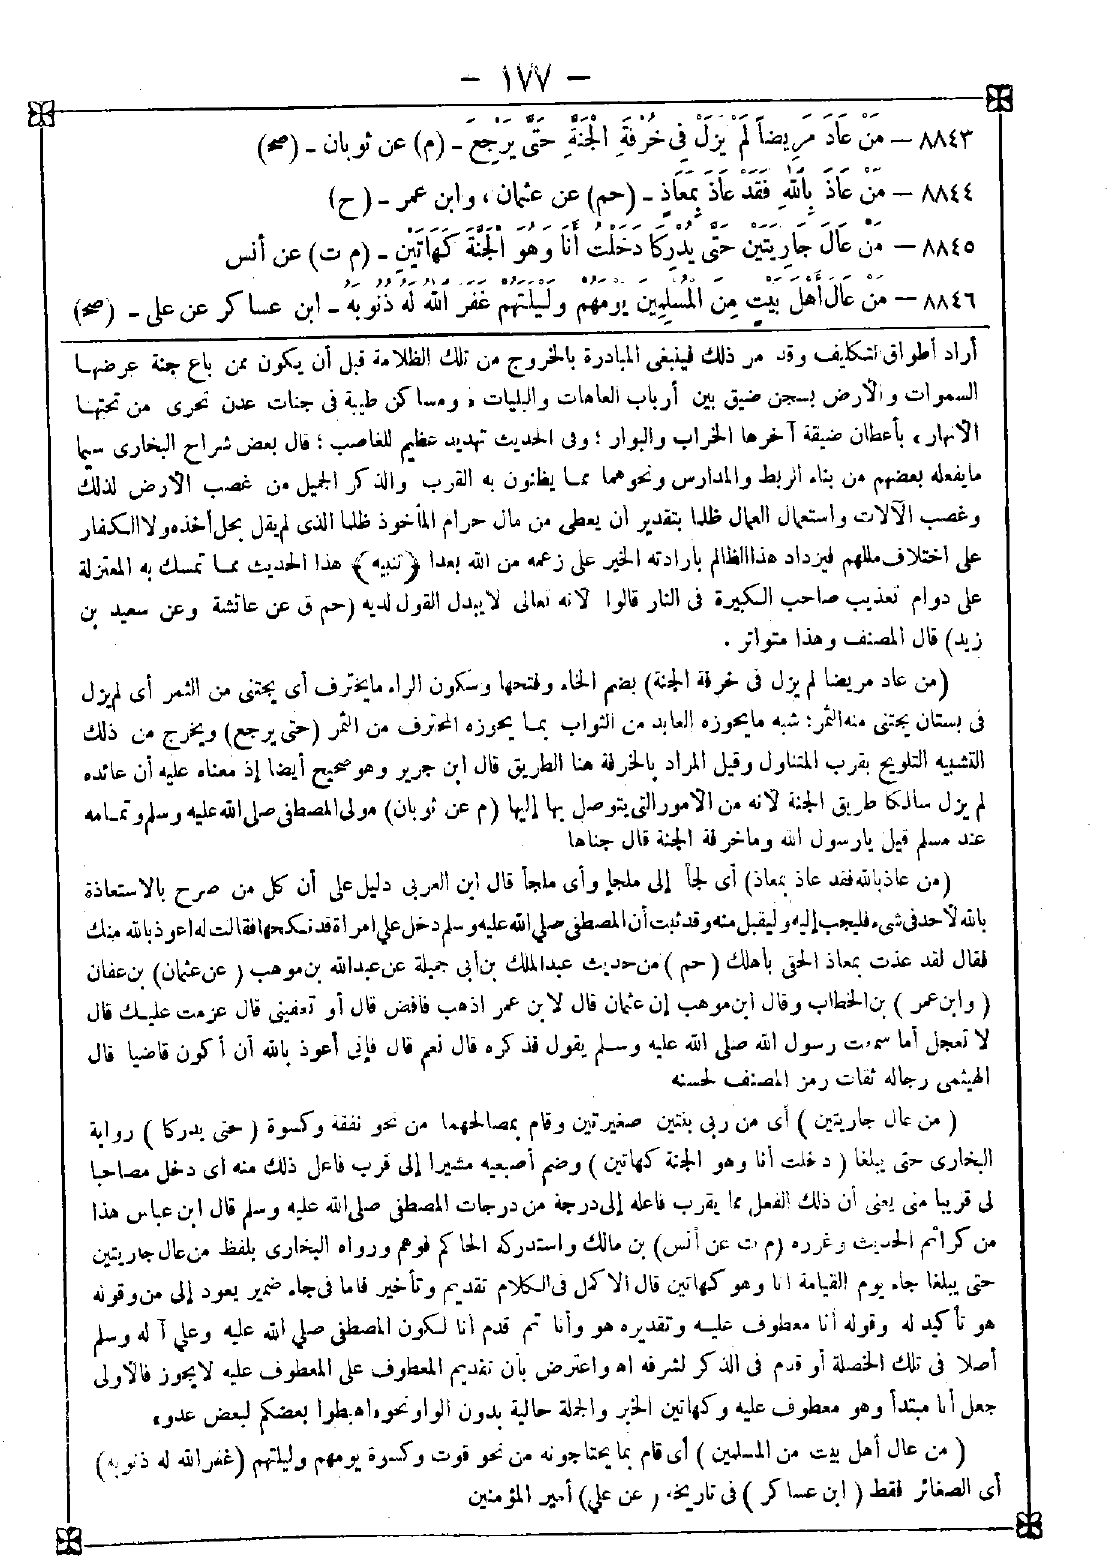 – ١٧٧ –
٨٨٤٣ – مَنْ عَادَ مَرِيضاً لَمْ يَزَلْ فِي خُرْفَةِ الْجَنَّةِ حَتَّى يَرْجِعَ – (م) عن ثوبان – (صح)
٨٨٤٤ – مَنْ عَاذَ بِاللّٰهِ فَقَدْ عَاذَ بِمَعَاذٍ – (حم) عن عثمان ، وابن عمر – (ح)
٨٨٤٥ – مَنْ عَالَ جَارِيَتَيْنِ حَتَّى يُدْرِكَا دَخَلْتُ أَنَا وَهُوَ الْجَنَّةَ كَهَاتَيْنِ – (م ت) عن أنس
٨٨٤٦ – مَنْ عَالَ أَهْلَ بَيْتٍ مِنَ الْمُسْلِمِينَ يَوْمَهُمْ وَلَيْلَتَهُمْ غَفَرَ اللّٰهُ لَهُ ذُنُوبَهُ – ابن عساكر عن على – (صح)
أراد أطواق التكليف وقد مر ذلك فينبغى المبادرة بالخروج من تلك الظلامة قبل أن يكون ممن باع جنة عرضها
السموات والأرض بسجن ضيق بين أرباب العاهات والبليات ؛ ومساكن طيبة فى جنات عدن تجرى من تحتها
الأنهار ، بأعطان ضيقة آخرها الخراب والبوار ؛ وفى الحديث تهديد عظيم للغاصب ؛ قال بعض شراح البخارى سيما
مايفعله بعضهم من بناء الربط والمدارس ونحوهما مما يظنون به القرب والذكر الجميل من غصب الأرض لذلك
وغصب الآلات واستعمال العمال ظلما بتقدير أن يعطى من مال حرام المأخوذ ظلما الذى لم يقل بحل أخذه ولا الكفار
على اختلاف مللهم فيزداد هذا الظالم بإرادته الخير على زعمه من الله بعدا ﴿تنبيه﴾ هذا الحديث مما تمسك به المعتزلة
على دوام تعذيب صاحب الكبيرة فى النار قالوا لأنه تعالى لايبدل القول لديه (حم ق عن عائشة وعن سعيد بن
زيد) قال المصنف وهذا متواتر .
(من عاد مريضا لم يزل فى خرفة الجنة) بضم الخاء وفتحها وسكون الراء مايخترف أى يجتنى من الثمر أى لم يزل
فى بستان يجتنى منه الثمر؛ شبه مايحوزه العايد من الثواب بما يحوزه المخترف من الثمر (حتى يرجع) ويخرج من ذلك
التشبيه التلويح بقرب المتناول وقيل المراد بالخرفة هنا الطريق قال ابن جرير وهو صحيح أيضا إذ معناه عليه أن عائده
لم يزل سالكا طريق الجنة لأنه من الأمور التى يتوصل بها إليها (م عن ثوبان) مولى المصطفى صلى الله عليه وسلم وتمامه
عند مسلم قيل يارسول الله وماخرفة الجنة قال جناها
(من عاذ بالله فقد عاذ بمعاذ) أى لجأ إلى ملجإ وأى ملجأ قال ابن العربى دليل على أن كل من صرح بالاستعاذة
بالله لأحد فى شىء فليجب إليه وليقبل منه وقد ثبت أن المصطفى صلى الله عليه وسلم دخل على امرأة قد نكحها فقالت له أعوذ بالله منك
فقال لقد عذت بمعاذ الحقى بأهلك (حم) من حديث عبدالملك بن أبى جميلة عن عبدالله بن موهب (عن عثمان) بن عفان
(وابن عمر) بن الخطاب وقال ابن موهب إن عثمان قال لابن عمر اذهب فاقض قال أو تعفينى قال عزمت عليك قال
لا تعجل أما سمعت رسول الله صلى الله عليه وسلم يقول فذكره قال نعم قال فإنى أعوذ بالله أن أكون قاضيا قال
الهيثمى رجاله ثقات رمز المصنف لحسنه
(من عال جاريتين) أى من ربى بنتين صغيرتين وقام بمصالحهما من نحو نفقة وكسوة (حتى يدركا) رواية
البخارى حتى يبلغا (دخلت أنا وهو الجنة كهاتين) وضم أصبعيه مشيرا إلى قرب فاعل ذلك منه أى دخل مصاحبا
لى قريبا منى يعنى أن ذلك الفعل مما يقرب فاعله إلى درجة من درجات المصطفى صلى الله عليه وسلم قال ابن عباس هذا
من كرائم الحديث وغرره (م ت عن أنس) بن مالك واستدركه الحاكم فوهم ورواه البخارى بلفظ من عال جاريتين
حتى يبلغا جاء يوم القيامة أنا وهو كهاتين قال الأكمل فى الكلام تقديم وتأخير فاما فى جاء ضمير يعود إلى من وقوله
هو تأكيد له وقوله أنا معطوف عليه وتقديره هو وأنا ثم قدم أنا لكون المصطفى صلى الله عليه وعلى آله وسلم
أصلا فى تلك الخصلة أو قدم فى الذكر لشرفه اه واعترض بأن تقديم المعطوف على المعطوف عليه لايجوز فالأولى
جعل أنا مبتدأ وهو معطوف عليه وكهاتين الخبر والجملة حالية بدون الواو نحو اهبطوا بعضكم لبعض عدو .
(من عال أهل بيت من المسلمين) أى قام بما يحتاجونه من نحو قوت وكسوة يومهم وليلتهم (غفر الله له ذنوبه)
أى الصغائر فقط (ابن عساكر) فى تاريخه (عن على) أمير المؤمنين